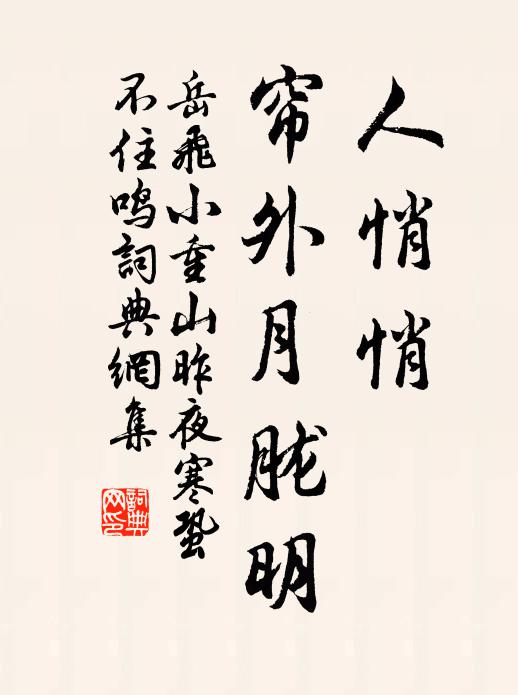 人悄悄
帘外月胧明
岳飛小重山昨夜寒蛩
不住鸣詞典網集
詞典
网印